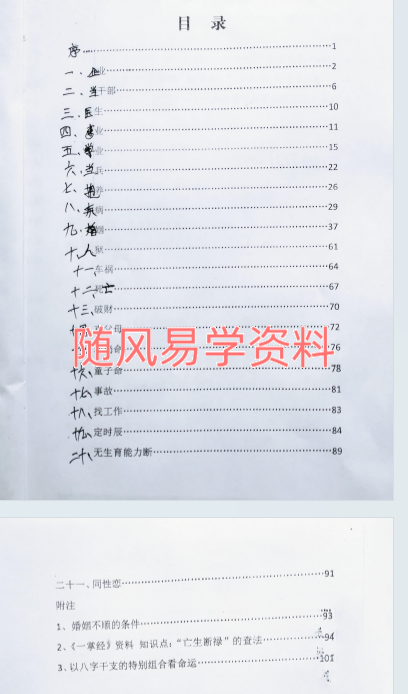 目 录
序 1
一、企业 2
二、当干部 6
三、医生 10
四、业 11
五、学业 15
六、当兵 22
七、抱养 26
八、疾病 29
九、婚姻 37
十、入狱 61
十一、车祸 64
十二、死亡 67
十三、破财 70
父母 72
命 76
十六、童子命 78
十七、事故 81
十八、找工作 83
十九、定时辰 84
二十、无生育能力断 89
随风易学资料
二十一、同性恋 91
附注
1、婚姻不顺的条件 93
2、《一掌经》资料 知识点：“亡生断禄”的查法 94
3、以八字干支的特别组合看命运 101